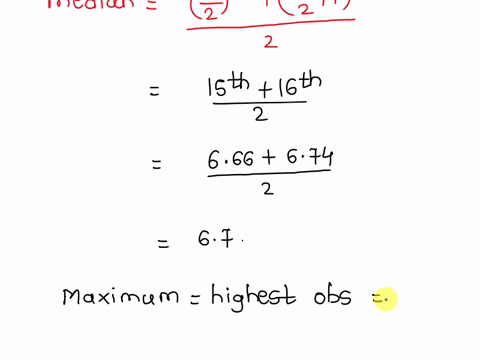 median = (n/2) + (n/2 + 1)
2
= 15th + 16th
2
= 6.66 + 6.74
2
= 6.7.
Maximum = highest obs =